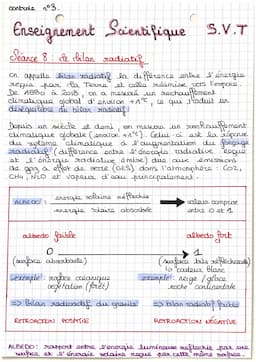 contrôle n°3.
Enseignement Scientifique S.V.T
Séance 8 : le bilan radiatif
On appelle bilan radiatif la différence entre l'énergie
reçue par la Terre et celle réémise vers l'espace.
De 1880 à 2018, on a mesuré un réchauffement
climatique global d'environ +1°C, ce qui traduit un
déséquilibre du bilan radiatif.
Depuis un siècle et demi, on mesure un réchauffement
climatique globale (environ +1°C). Celui-ci est la réponse
du système climatique à l'augmentation du forçage
radiatif (différence entre l'énergie radiative reçue
et l'énergie radiative émise) due aux émissions
de gaz à effet de serre (GES) dans l'atmosphère : CO2,
CH4, N2O et vapeur d'eau principalement.
ALBEDO : énergie solaire réfléchie valeur comprise
énergie solaire absorbée entre 0 et 1
albedo faible albedo fort
0 1
(surface absorbante) (surface très réfléchissante)
↳ couleur blanc
exemple : surface océanique exemple : neige / glace
végétation (forêt) roche continentale
=> bilan radiatif du grandit => bilan radiatif faible
RETROACTION POSITIVE RETROACTION NÉGATIVE
ALBEDO : rapport entre l'énergie lumineuse réfléchie par une
surface et l'énergie solaire reçue par cette même surface.